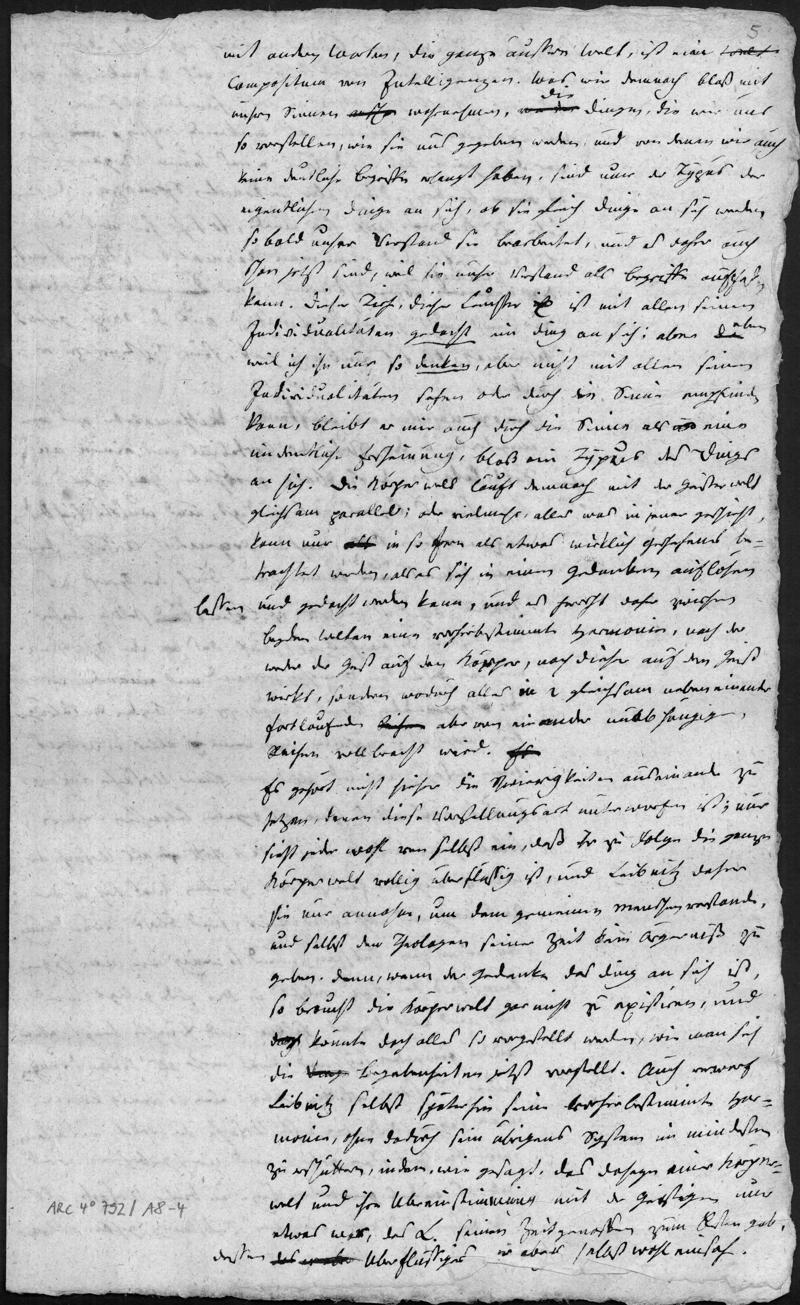 5
mit andern Worten, die ganze äussere Welt, ist eine
Compositum von Intelligenzen. Was wir demnach bloß mit
unsern Sinnen wahrnehmen, die Dinge, die wir uns
so vorstellen, wie sie uns gegeben werden, und von denen wir auch
keine deutliche Begriffe erlangt haben, sind nur der Typus der
eigentlichen Dinge an sich, ob sie gleich Dinge an sich werden,
so bald unser Verstand sie bearbeitet, und es daher auch
schon jetzt sind, weil sie unser Verstand als Begriffe auffassen
kann. Dieser Tisch, dieser Leuchter ist mit allen seinen
Individualitäten gedacht ein Ding an sich; aber eben
weil ich ihn nur so denken, aber nicht mit allen seinen
Individualitäten sehen oder durch die Sinne empfinden
kann, bleibt er mir auch durch die Sinne als eine
undeutliche Erscheinung, bloß ein Typus des Dings
an sich. Die Körperwelt läuft demnach mit der Geisterwelt
gleichsam parallel; oder vielmehr, alles was in jener geschieht,
kann nur in so fern als etwas wirklich geschehenes be-
trachtet werden, als es sich in einen Gedanken auflösen
lassen und gedacht werden kann, und es herrscht daher zwischen
beyden Welten eine vorherbestimmte Harmonie, nach der
weder der Geist auf den Körper, noch dieser auf den Geist
wirkt, sondern wodurch alles in 2 gleichsam neben einander
fortlaufenden aber von einander unabhängigen
Reihen vollbracht wird.
Es gehört nicht hieher die Schwierigkeiten auseinander zu
setzen, denen diese Vorstellungsart unterworfen ist; nur
sieht jeder wohl von selbst ein, daß ihr zu Folge die ganze
Körperwelt völlig überflüssig ist, und Leibnitz daher
sie nur annahm, um dem gemeinen Menschenverstande,
und selbst den Theologen seiner Zeit kein Ärgerniß zu
geben. Denn, wenn der Gedanke das Ding an sich ist,
so braucht die Körperwelt gar nicht zu existiren, und
könnte doch alles so vorgestellt werden, wie man sich
die Begebenheiten jetzt vorstellt. Auch verwarf
Leibnitz selbst späterhin seine vorherbestimmte Har-
monie, ohne dadurch sein übriges System im mindesten
zu erschüttern, indem, wie gesagt, das Daseyn einer Körper-
welt und ihre Übereinstimmung mit der geistigen nur
etwas war, das L. seinen Zeitgenossen zum Besten gab,
dessen Überflüssiges er aber selbst wohl einsah.
ARC 4° 792/ A8-4